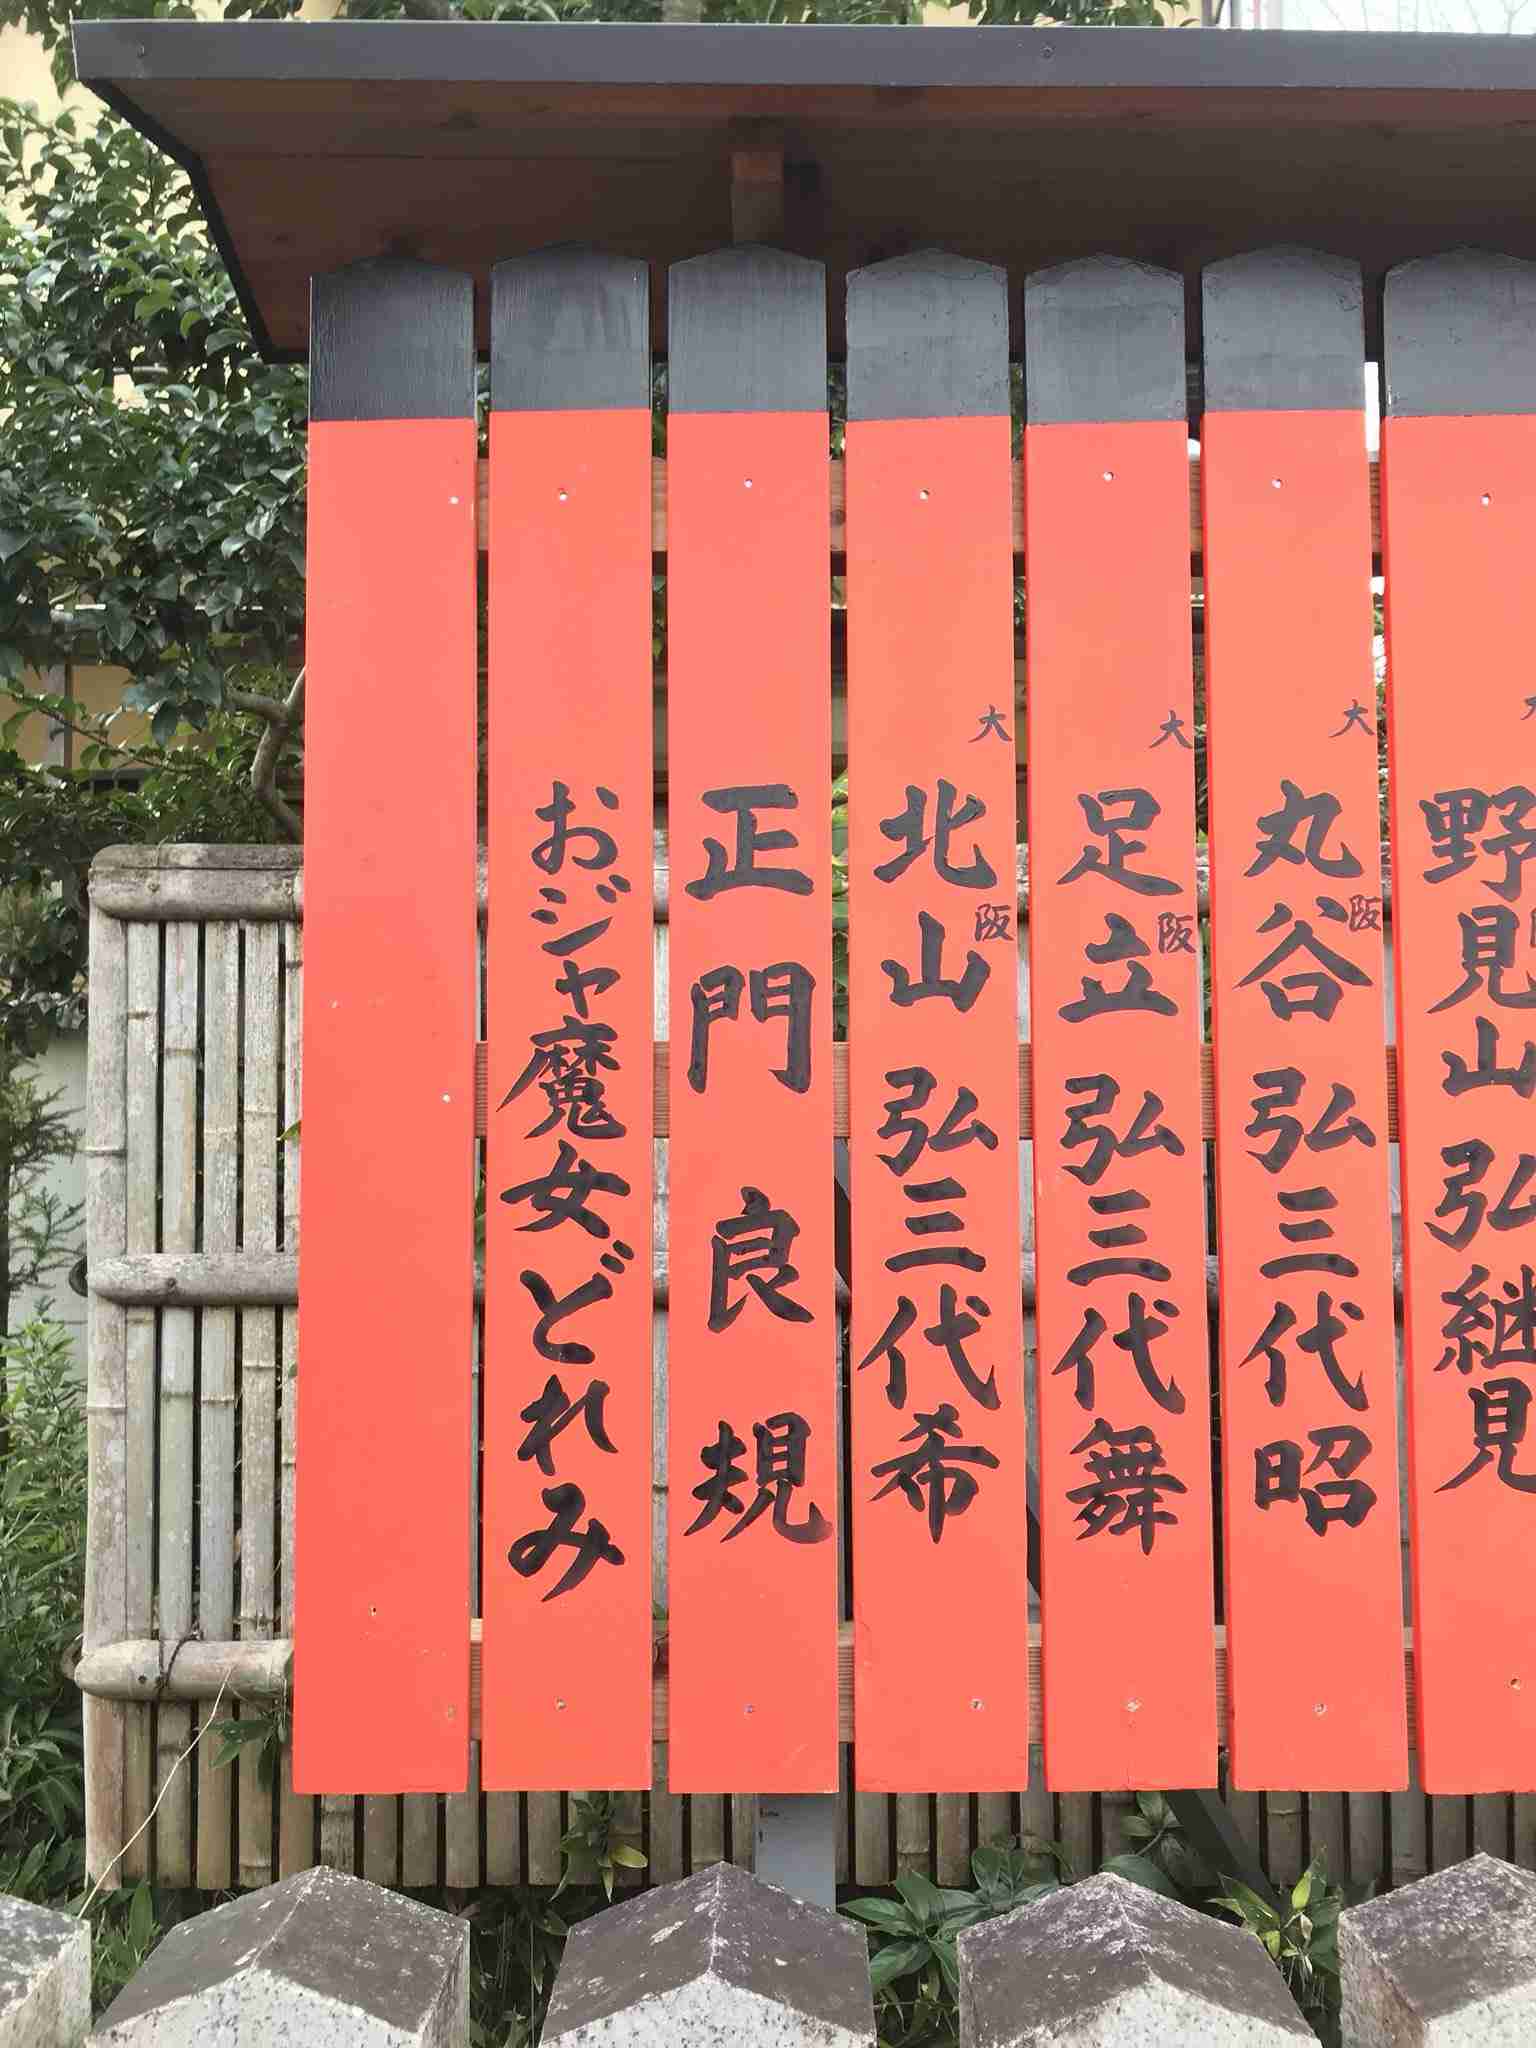 野見山 弘継見
大阪
丸谷 弘三代昭
大阪
足立 弘三代舞
大阪
北山 弘三代希
正門良規
おジャ魔女どれみ